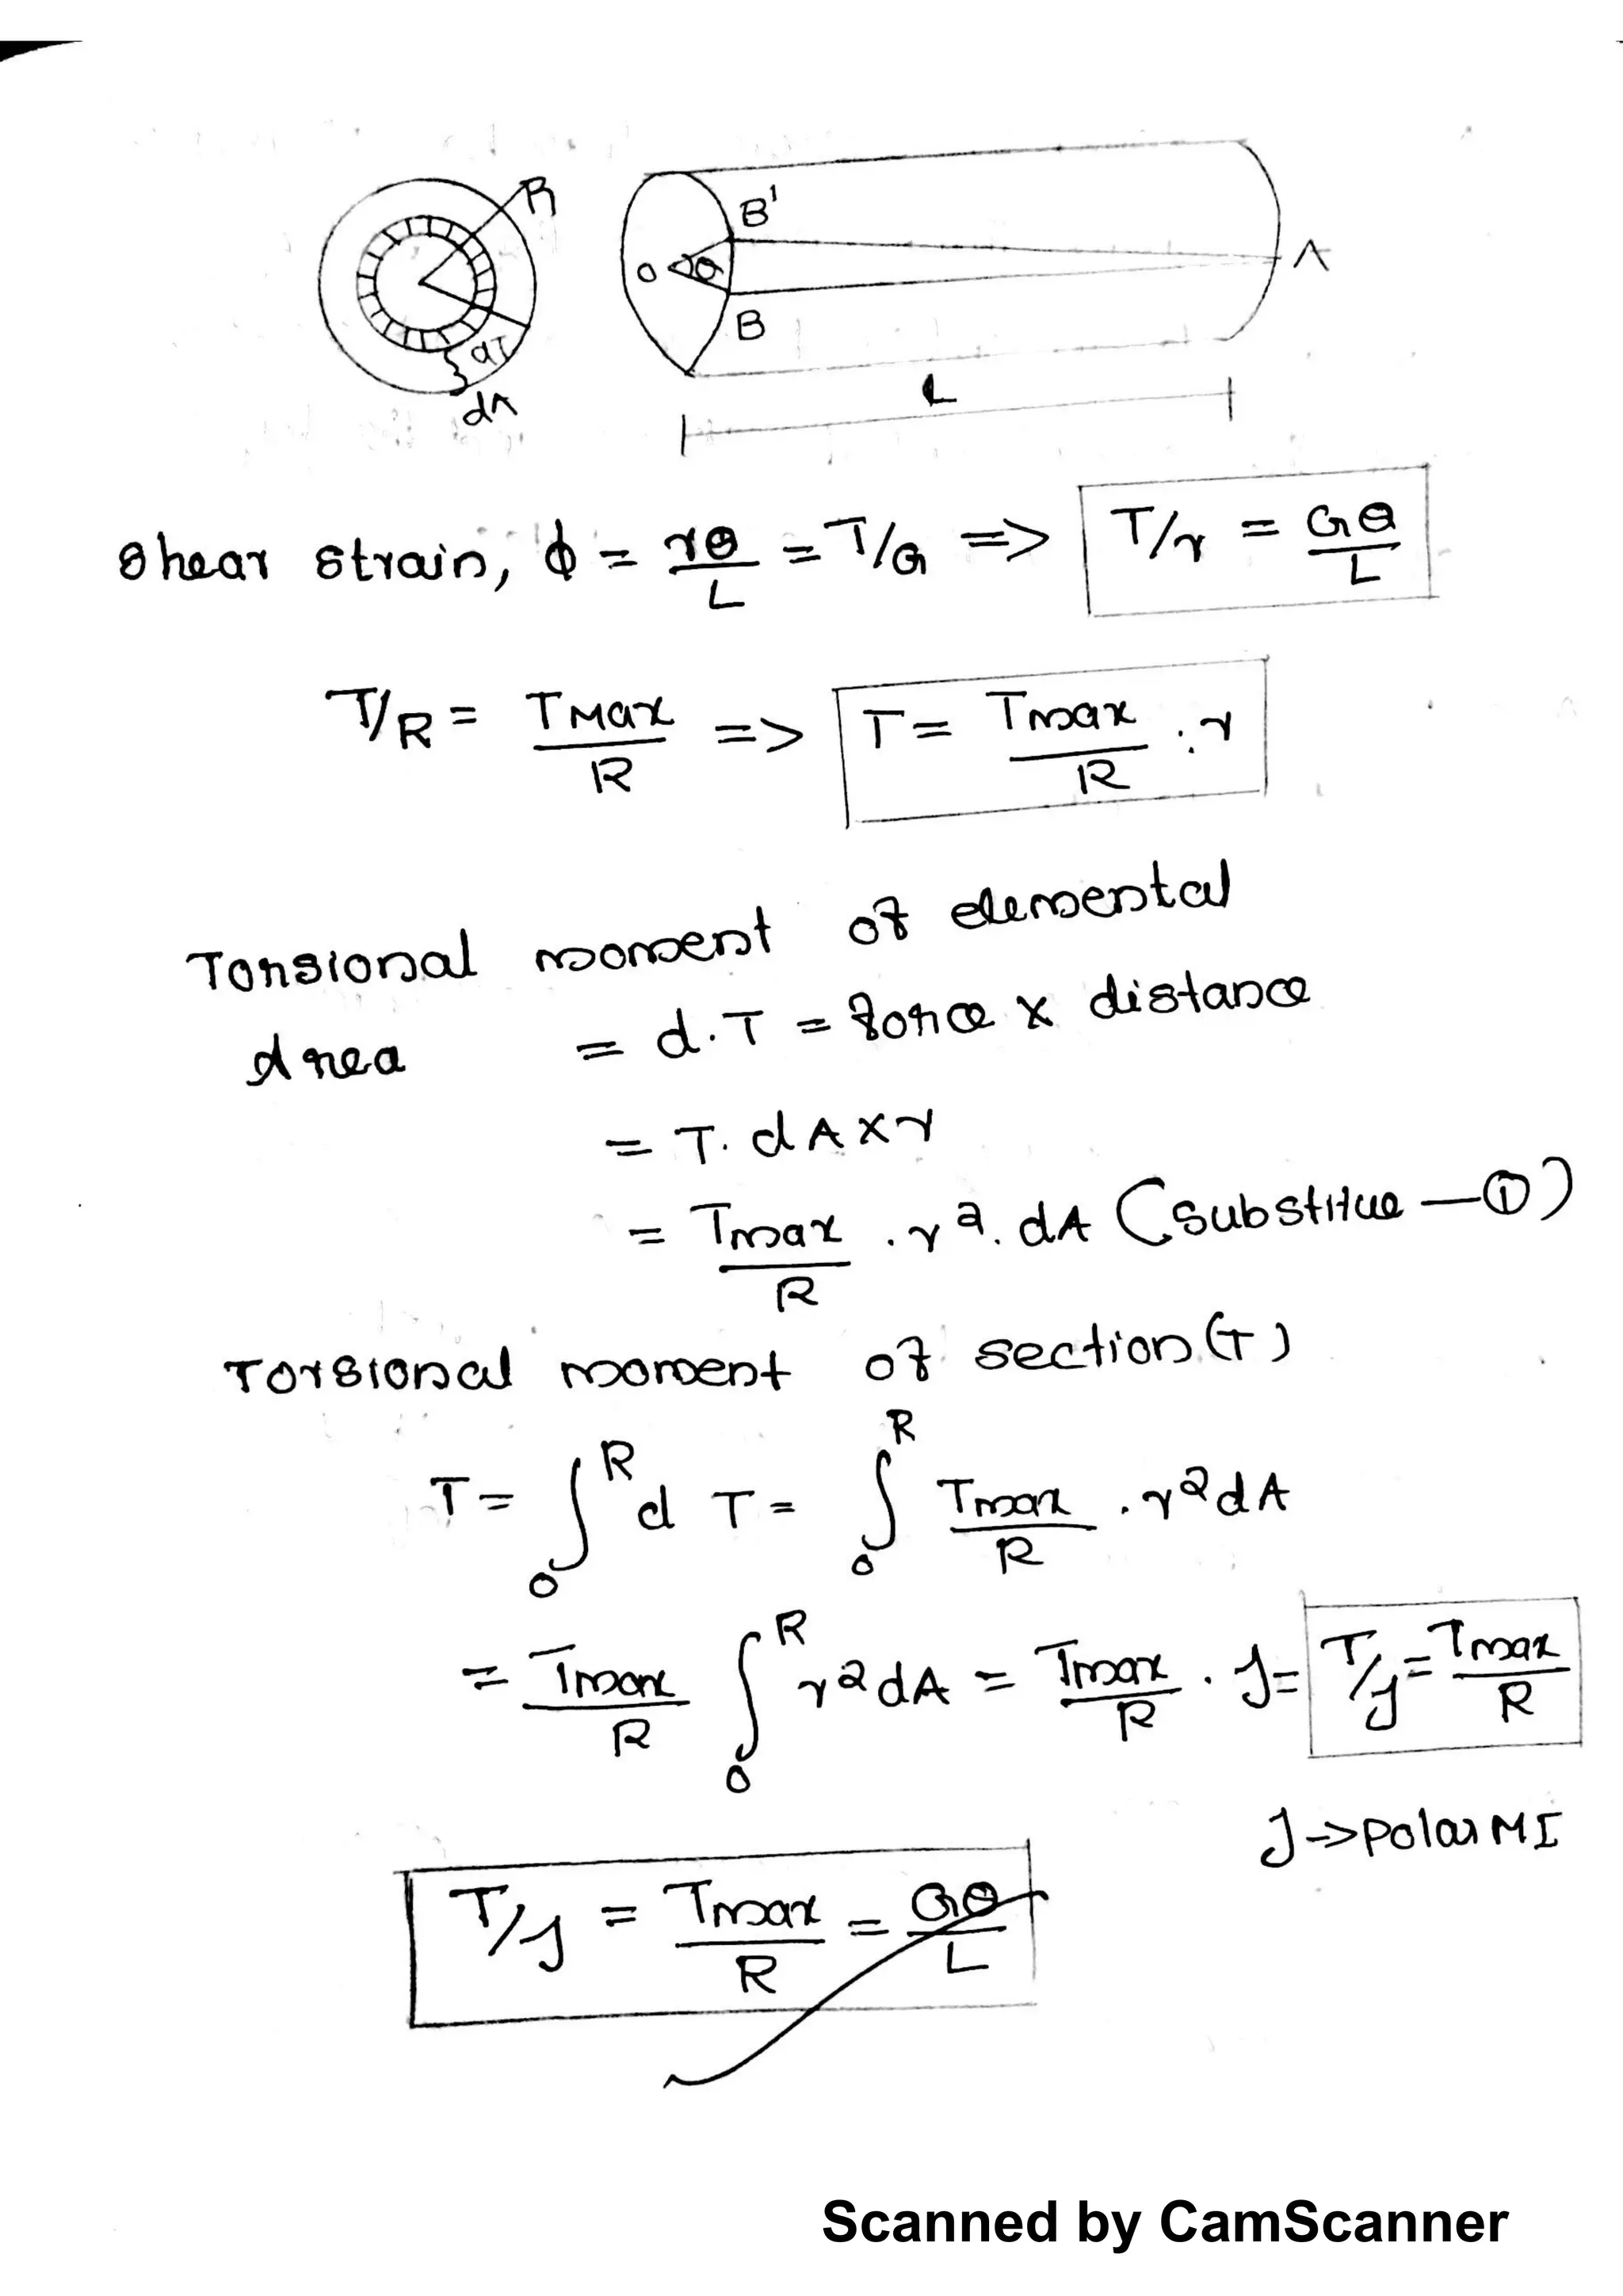 R
B'
O θ
A
B
dr
dA
L
Shear strain, ϕ = rθ/L = T/G => T/r = Gθ/L
T/R = TMax/R => T = Tmax/R . r
Torsional moment of elemental
Area = d.T = force x distance
= T. dA x r
= Tmax/R . r². dA (substitue — ①)
Torsional moment of section (T)
T = ∫₀ᴿ d T = ∫₀ᴿ Tmax/R . r² dA
= Tmax/R ∫₀ᴿ r² dA = Tmax/R . J = T/J = Tmax/R
J -> Polar MI
T/J = Tmax/R = Gθ/L
Scanned by CamScanner